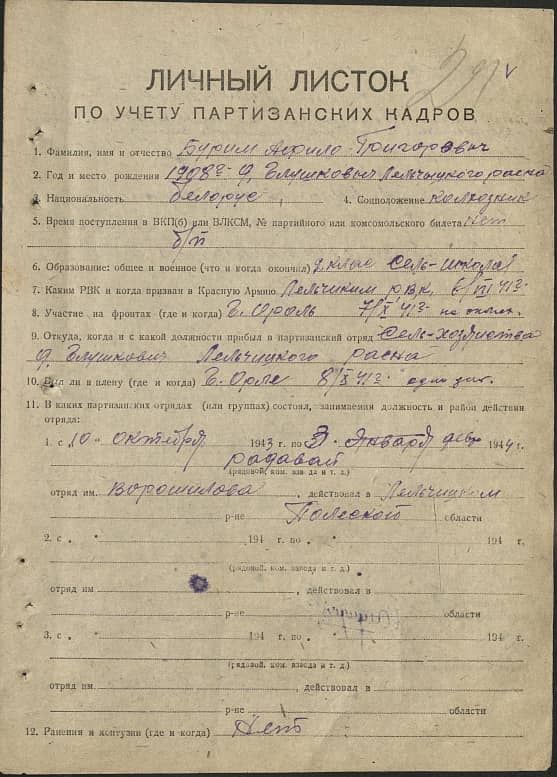 ЛИЧНЫЙ ЛИСТОК
ПО УЧЕТУ ПАРТИЗАНСКИХ КАДРОВ
1. Фамилия, имя и отчество Бурим Григоревич
2. Год и место рождения 1908 г. д. Глушковичи Лельчицкого
3. Национальность белорус, 4. Соцположение колхозник
5. Время поступления в ВКП(б) или ВЛКСМ, № партийного или комсомольского билета нет
б/п
6. Образование: общее и военное (что и когда окончил) сель-школа
7. Каким РВК и когда призван в Красную Армию рвк, 6/VII 41 г.
8. Участие на фронтах (где и когда) 7/X 41 г.
9. Откуда, когда и с какой должности прибыл в партизанский отряд сель-хозяйства
д. Глушкович Лельчицкого
10. Был ли в плену (где и когда) г. Орле 8/X 41 г. один
11. В каких партизанских отрядах (или группах) состоял, занимаемая должность и район действия
отряда:
1. с 10 октября 1943 г. по 3 января 1944 г.
радавай
(рядовой, ком. взвода и т. д.)
отряд им. Ворошилова, действовал в Лельчицком
р-не Полеской области
2. с 194 г. по 194 г.
(рядовой, ком. взвода и т. д.)
отряд им , действовал в
р-не области
3. с 194 г. по 194 г.
(рядовой, ком. взвода и т. д.)
отряд им , действовал в
р-не области
12. Ранения и контузии (где и когда) Нет